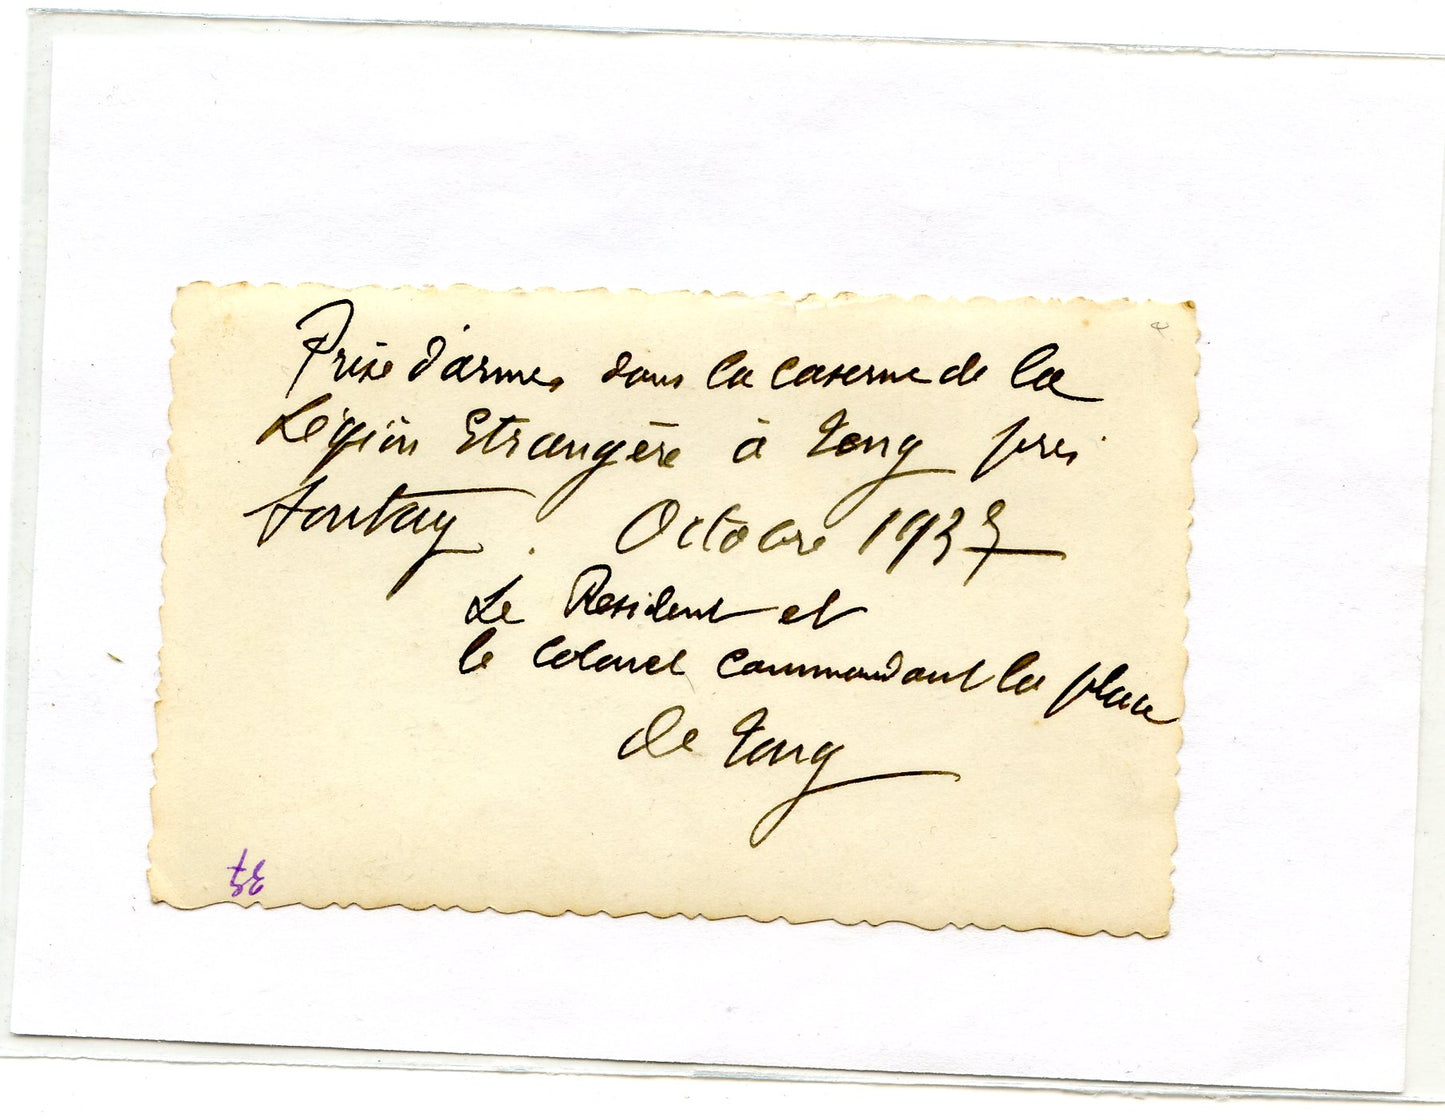 Prise d'armes dans la caserne de la
Légion Etrangère à Tong près
Sontay. Octobre 1937
Le Résident et
le Colonel Commandant la place
de Tong